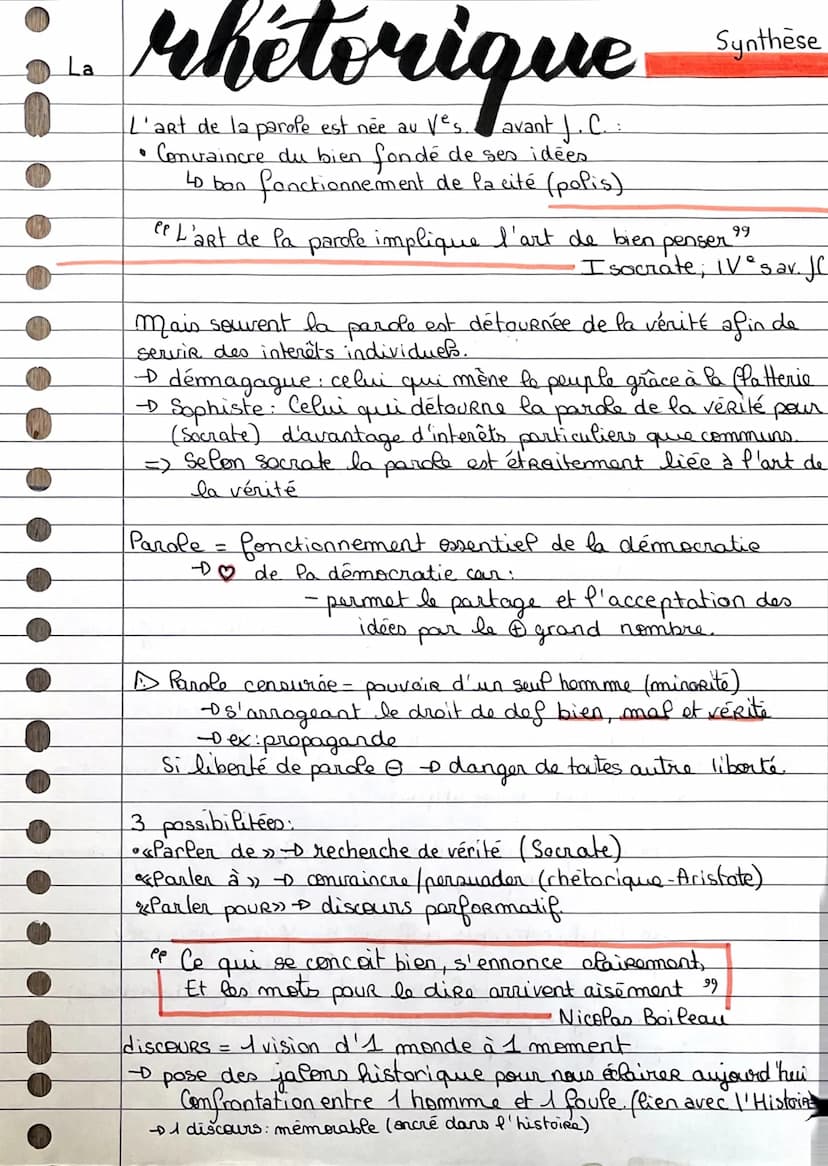 La rhétorique Synthèse
L'art de la parole est née au Vᵉs. avant J.C. :
• Convaincre du bien fondé de ses idées
↳ bon fonctionnement de la cité (polis)
"L'art de la parole implique l'art de bien penser"
Isocrate, IVᵉ s av. JC
Mais souvent la parole est détournée de la vérité afin de
servir des interêts individuels.
→ démagague : celui qui mène le peuple grâce à la flatterie
→ Sophiste : Celui qui détourne la parole de la vérité pour
(Socrate) d'avantage d'interêts particuliers que communs.
=> Selon Socrate la parole est étraitement liée à l'art de
la vérité
Parole = fonctionnement essentiel de la démocratie
→ ♡ de la démocratie car :
- permet le partage et l'acceptation des
idées par le ⊕ grand nombre.
⚠ Parole censurée = pouvoir d'un seul homme (minorité)
→ s'arrogeant le droit de def bien, mal et vérité
→ ex : propagande
Si liberté de parole ⊖ → danger de toutes autre liberté.
3 possibilitées :
• «Parler de» → recherche de vérité (Socrate)
• «Parler à» → convaincre/persuader (rhétorique - Aristote)
• «Parler pour» → discours performatif.
"Ce qui se concoit bien, s'ennonce clairement,
Et les mots pour le dire arrivent aisément"
Nicolas Boileau
discours = 1 vision d'1 monde à 1 moment
→ pose des jalons historique pour nous éclairer aujourd'hui
Confrontation entre 1 homme et 1 foule. (lien avec l'Histoire
→ 1 discours : mémorable (encré dans l'histoire)